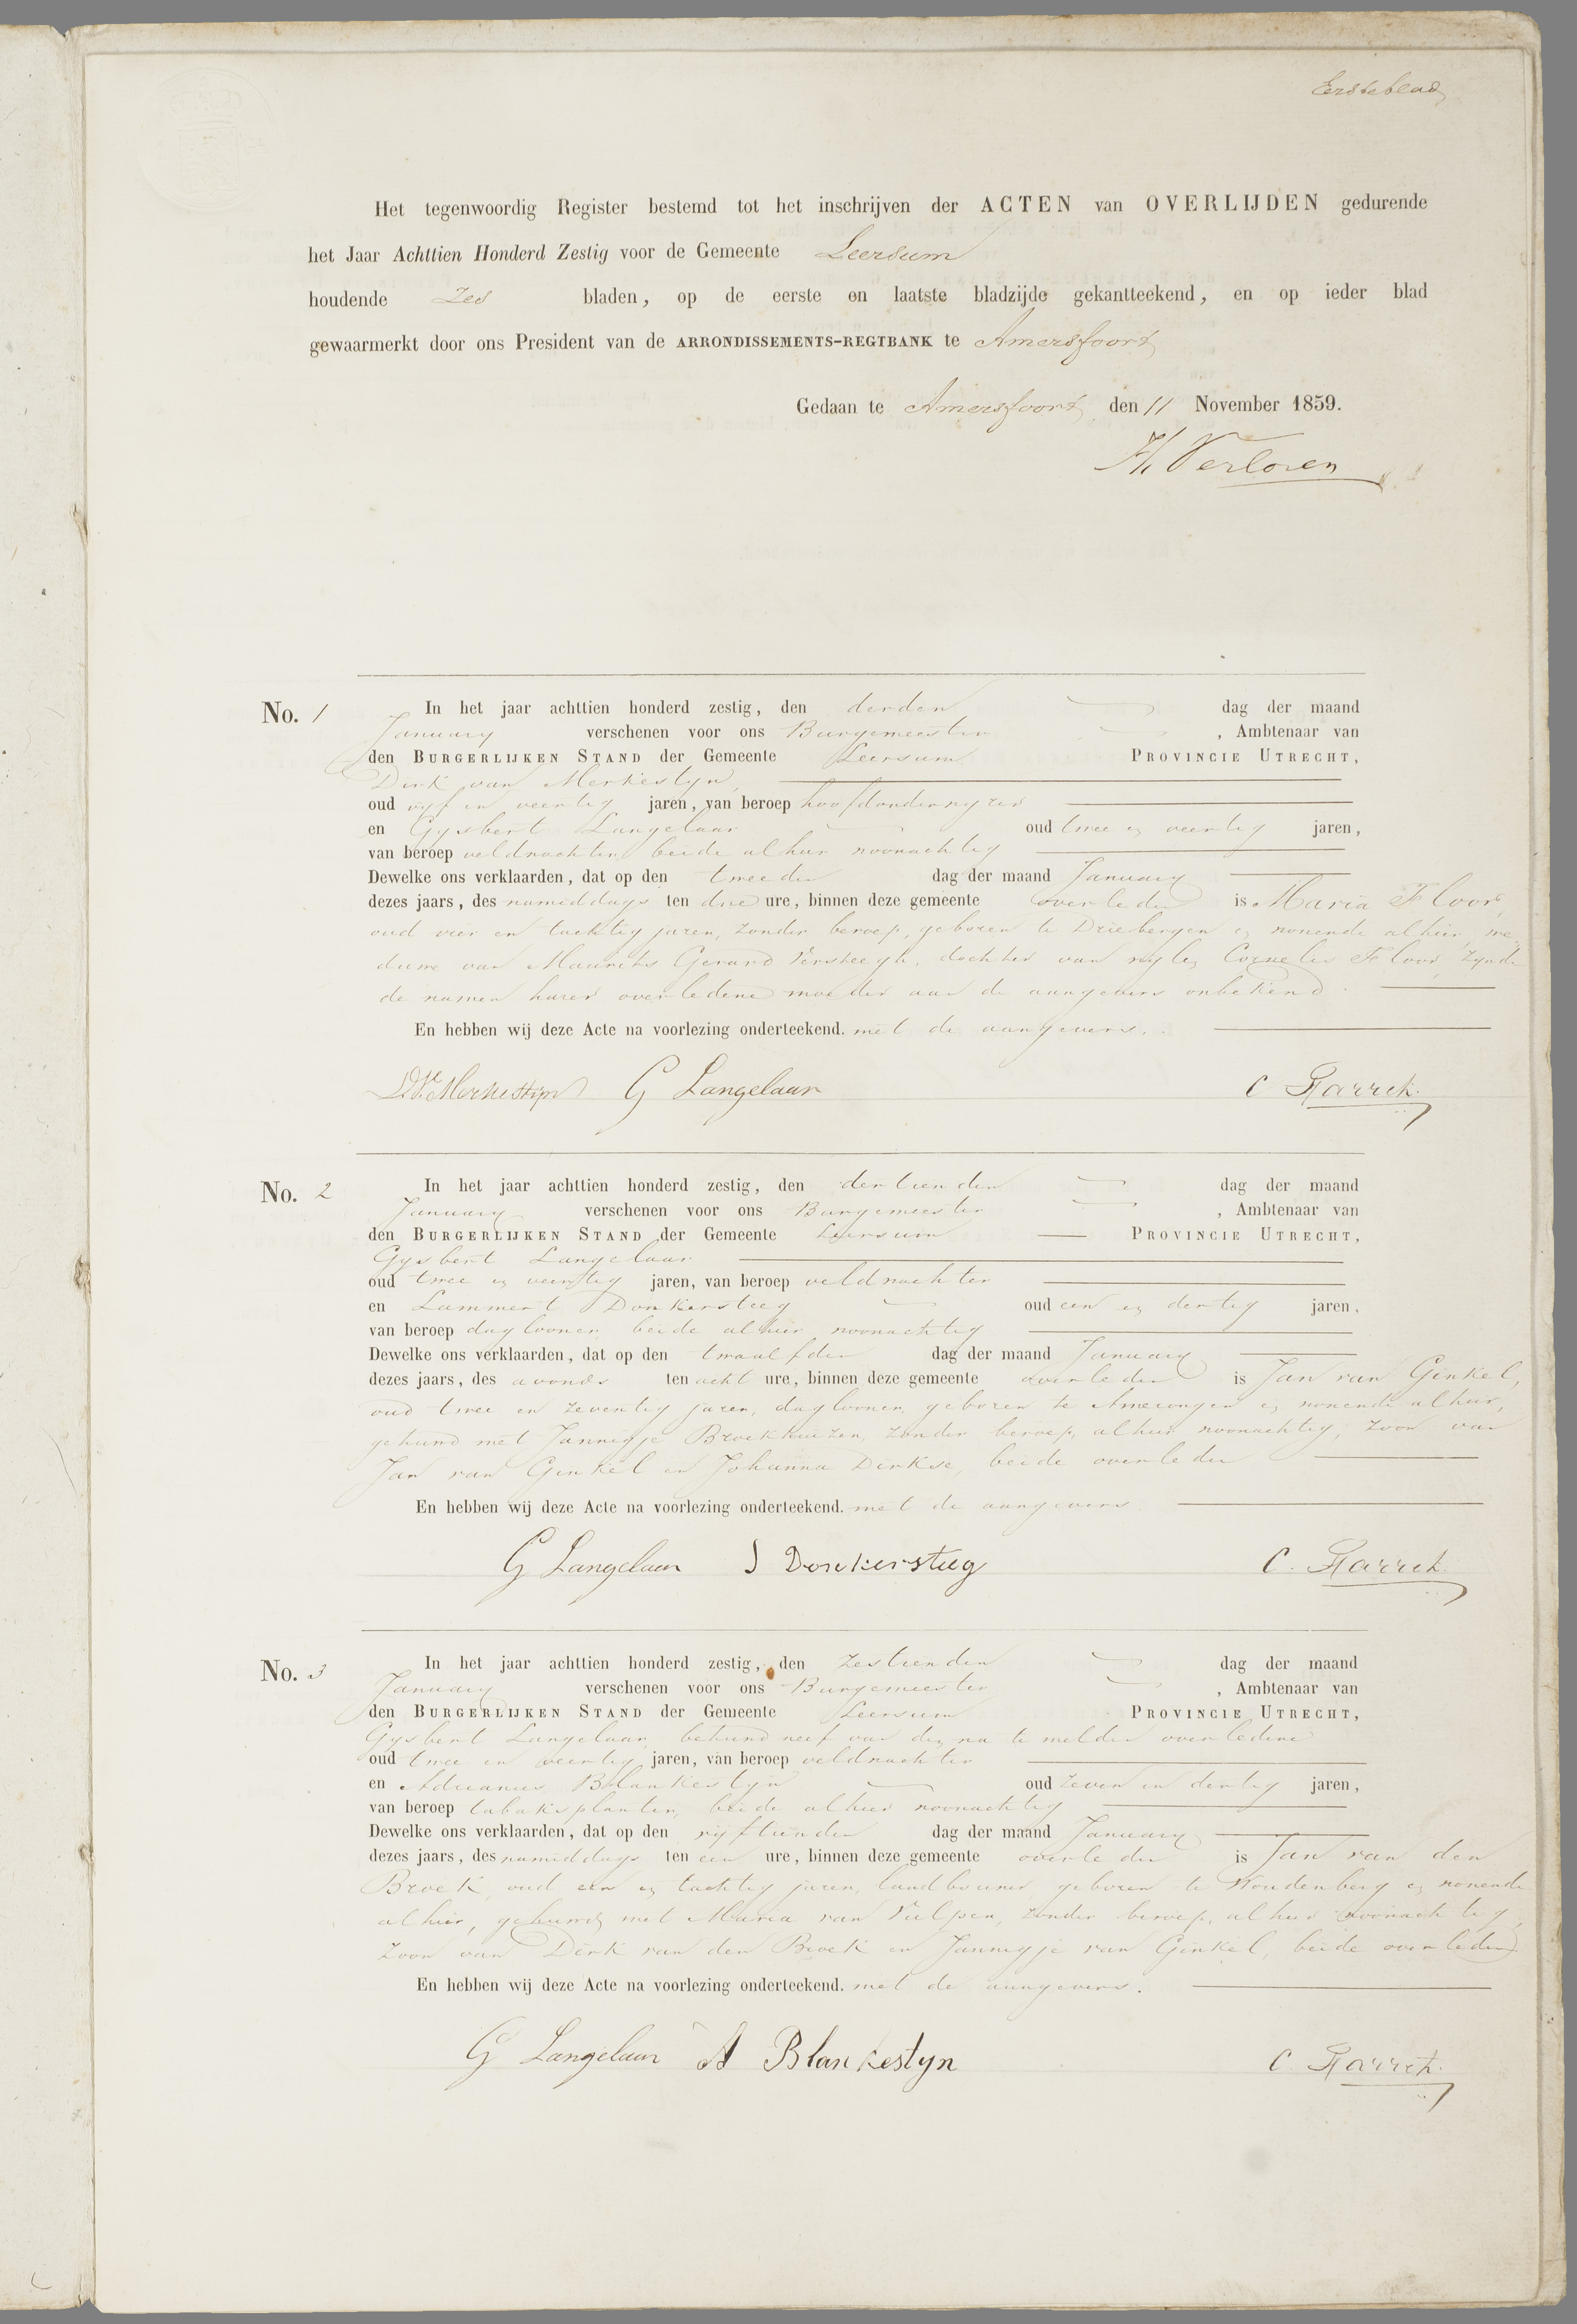 Eersteblad
Het tegenwoordig Register bestemd tot het inschrijven der ACTEN van OVERLIJDEN gedurende
het Jaar Achttien Honderd Zestig voor de Gemeente Leersum
houdende Zes bladen, op de eerste en laatste bladzijde gekantteekend, en op ieder blad
gewaarmerkt door ons President van de ARRONDISSEMENTS-REGTBANK te Amersfoort
Gedaan te Amersfoort, den 11 November 1859.
H. Verloren
No. 1 In het jaar achttien honderd zestig, den derden dag der maand
January verschenen voor ons Burgemeester , Ambtenaar van
den BURGERLIJKEN STAND der Gemeente Leersum PROVINCIE UTRECHT,
Dirk van Merkestyn,
oud vyf en veertig jaren, van beroep hoofdonderwyzer
en Gysbert Langelaar oud twee en veertig jaren,
van beroep veldwachter, beide alhier woonachtig
Dewelke ons verklaarden, dat op den tweeden dag der maand January
dezes jaars, des namiddags ten drie ure, binnen deze gemeente overleden is Maria Floor,
oud vier en tachtig jaren, zonder beroep, geboren te Driebergen en wonende alhier, we-
duwe van Maurits Gerard Versteegh, dochter van wylen Cornelis Floor, zynde
de namen harer overledene moeder aan de aangevers onbekend.
En hebben wij deze Acte na voorlezing onderteekend. met de aangevers.
D.V. Merkestijn G Langelaar C Karrek.
No. 2 In het jaar achttien honderd zestig, den dertienden dag der maand
January verschenen voor ons Burgemeester , Ambtenaar van
den BURGERLIJKEN STAND der Gemeente Leersum PROVINCIE UTRECHT,
Gysbert Langelaar
oud twee en veertig jaren, van beroep veldwachter
en Lammert Donkersteeg oud een en dertig jaren,
van beroep daglooner, beide alhier woonachtig
Dewelke ons verklaarden, dat op den twaalfden dag der maand January
dezes jaars, des avonds ten acht ure, binnen deze gemeente overleden is Jan van Ginkel,
oud twee en zeventig jaren, daglooner, geboren te Amerongen en wonende alhier,
gehuwd met Jannigje Broekhuizen, zonder beroep, alhier woonachtig, zoon van
Jan van Ginkel en Johanna Dirkse, beide overleden
En hebben wij deze Acte na voorlezing onderteekend. met de aangevers
G Langelaar Donkersteeg C. Karrek.
No. 3 In het jaar achttien honderd zestig, den zestienden dag der maand
January verschenen voor ons Burgemeester , Ambtenaar van
den BURGERLIJKEN STAND der Gemeente Leersum PROVINCIE UTRECHT,
Gysbert Langelaar, behuwd neef van den na te melden overledene
oud twee en veertig jaren, van beroep veldwachter
en Adrianus Blankestyn oud zeven en dertig jaren,
van beroep tabaksplanter, beide alhier woonachtig
Dewelke ons verklaarden, dat op den vyftienden dag der maand January
dezes jaars, des namiddags ten een ure, binnen deze gemeente overleden is Jan van den
Broek, oud een en tachtig jaren, landbouwer geboren te Woudenberg en wonende
alhier, gehuwd met Maria van Vulpen, zonder beroep, alhier woonachtig,
zoon van Dirk van den Broek en Jannigje van Ginkel, beide overleden
En hebben wij deze Acte na voorlezing onderteekend. met de aangevers.
G Langelaar A Blankestyn C. Karrek.